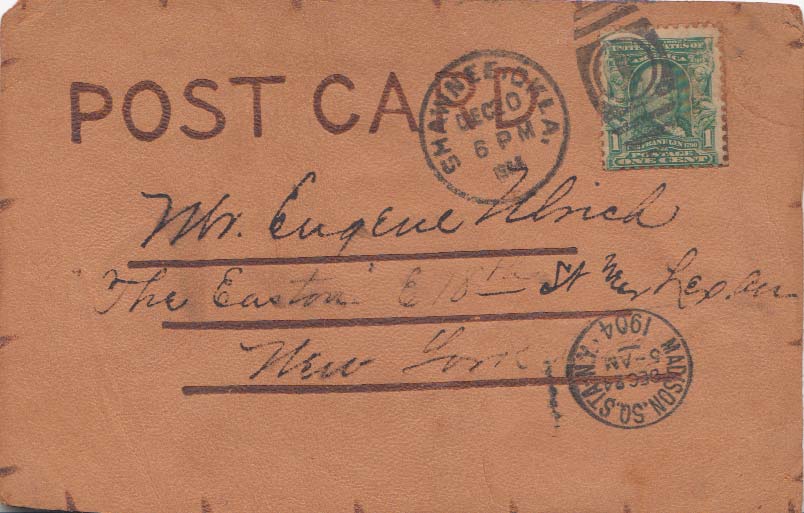 POST CARD
SHAWNEE, OKLA.
DEC 20
6 PM
1904
UNITED STATES OF AMERICA
1 1
FRANKLIN 1790
POSTAGE
ONE CENT
Mr. Eugene Ulrich
"The Easton" E 18th St near Lex. Av
New York
MADISON SQ. STA. N.Y.
DEC 24
5-AM
1904